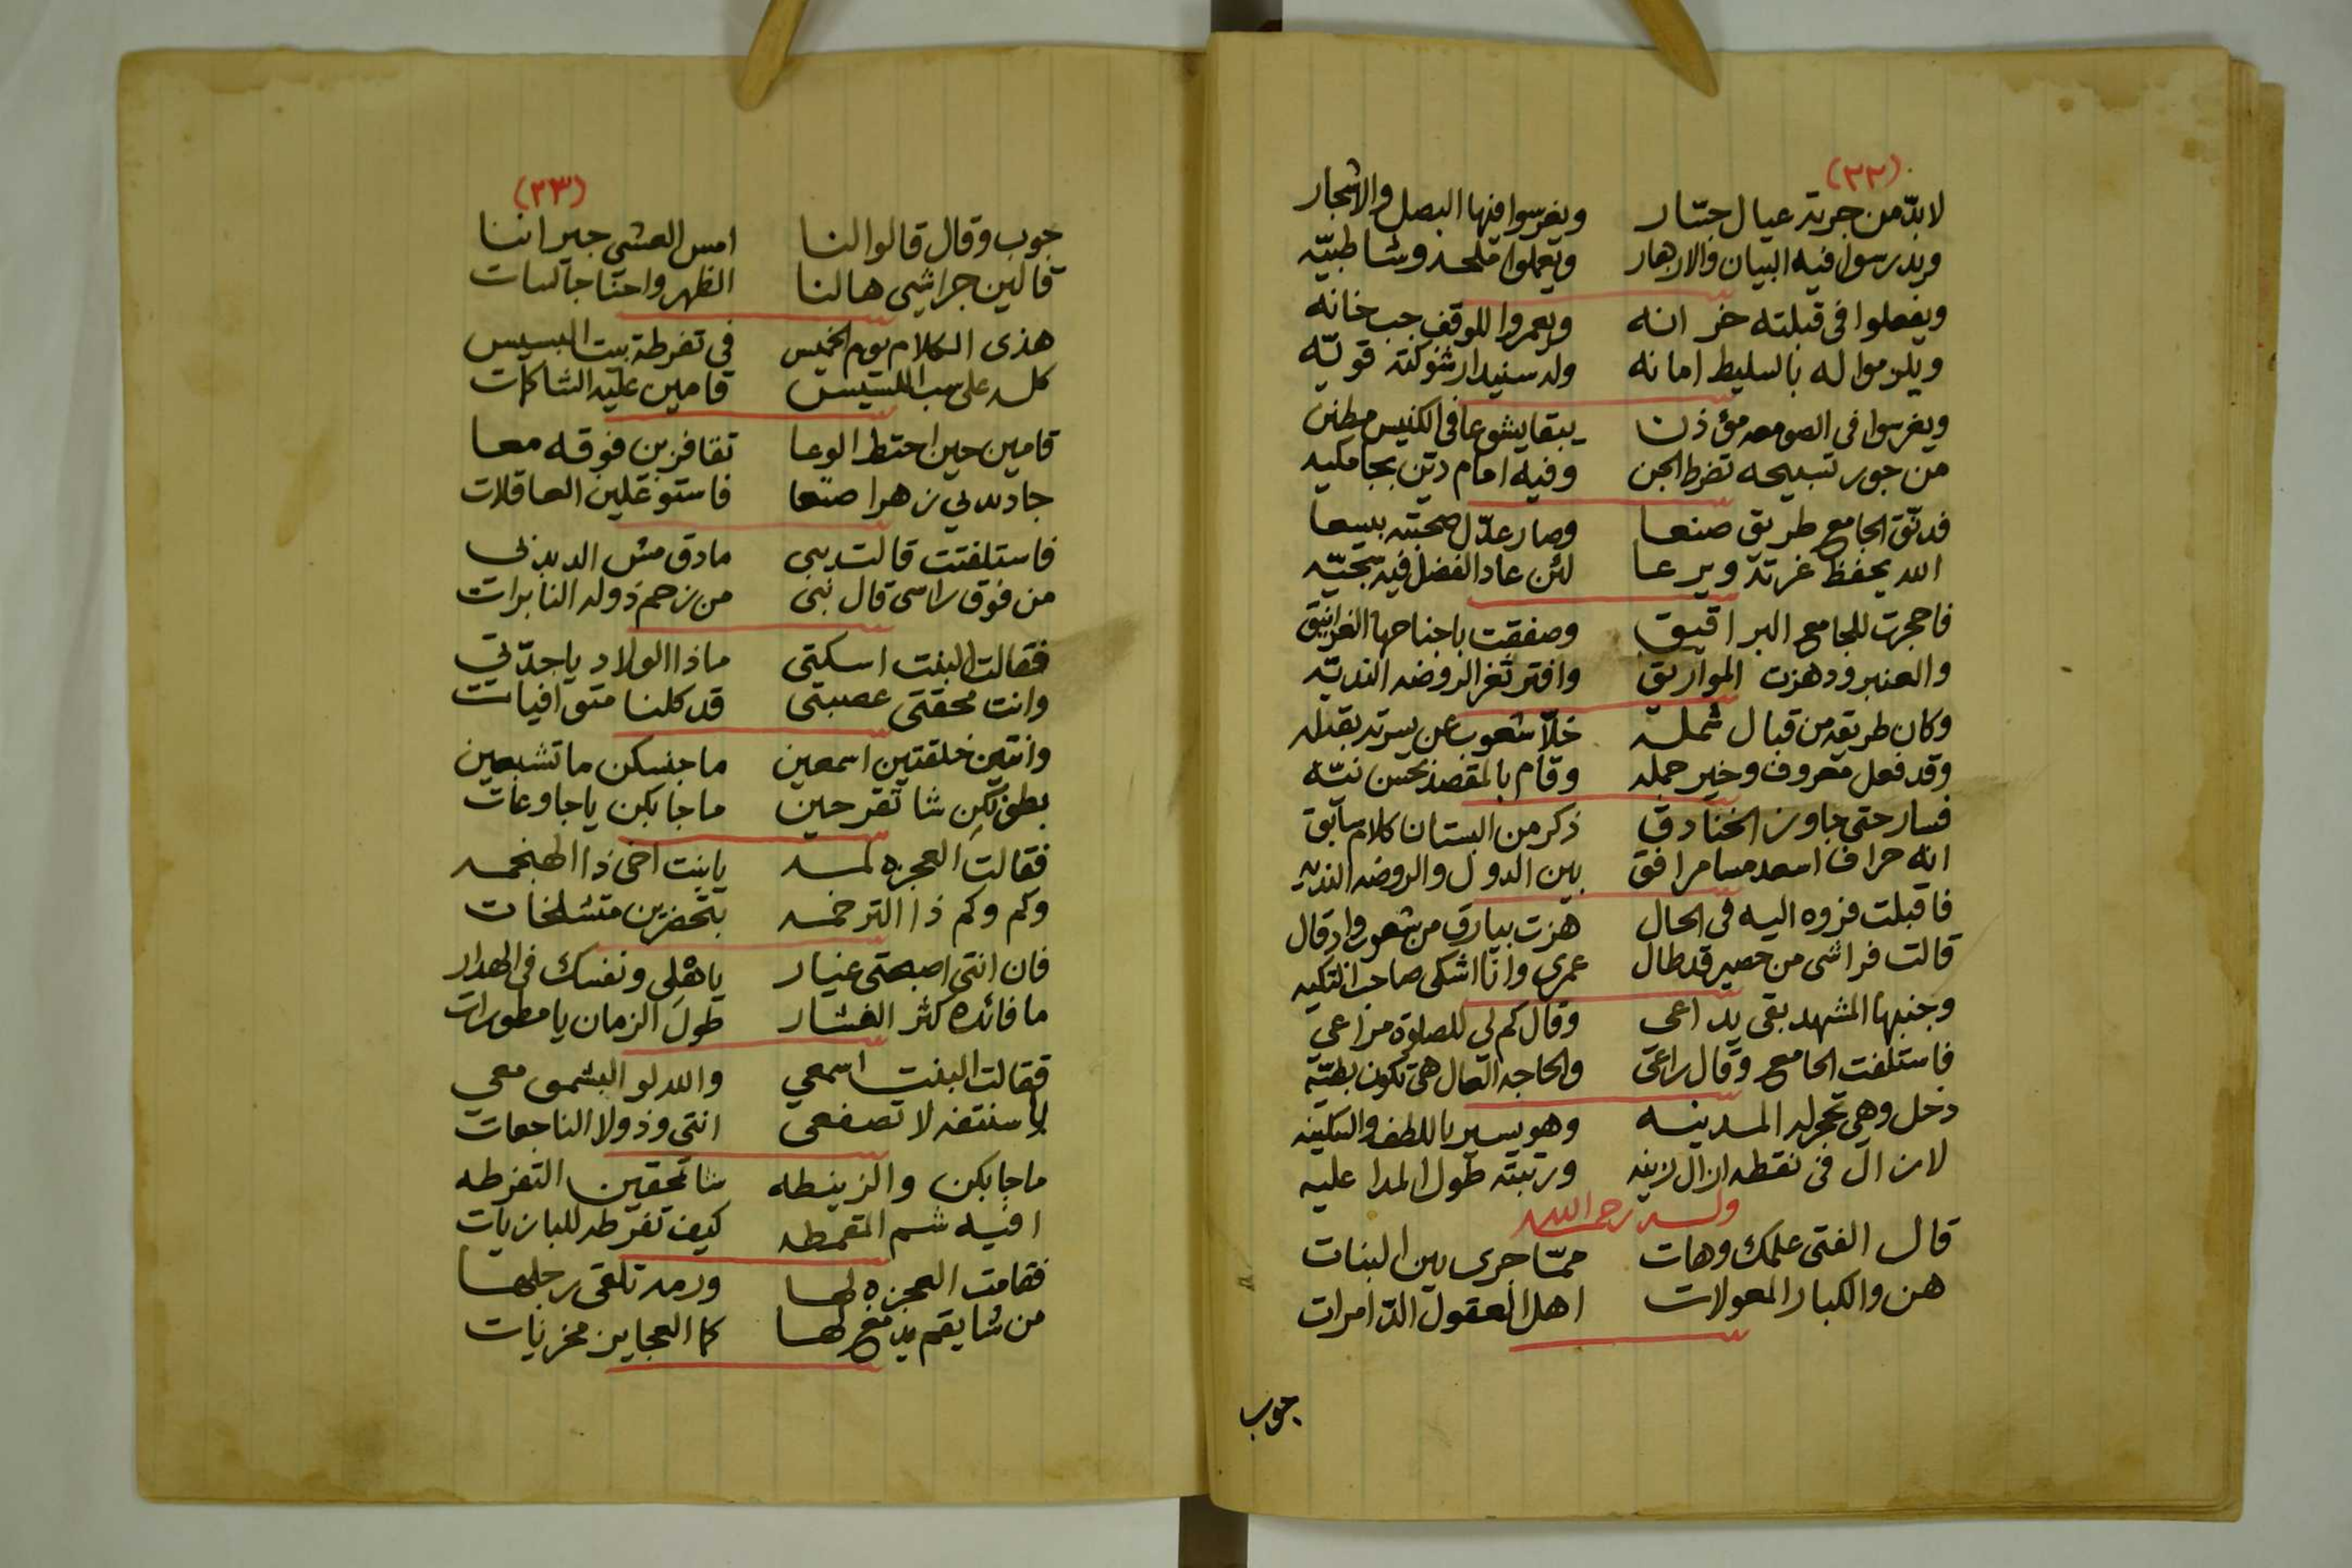 (٣٢)
لا بدّ من جربة عيال جبّار ويغرسوا فيها البصل والاشجار
ويدرسوا فيه البيان والازهار ويعملوا ملحه وشاطبيّه
ويفعلوا في قبلته خزانه ويعمروا للوقف جب خانه
ويلزموا له بالسليط امانه وله سنيدار شوكته قويّه
ويغرسوا في الصومعه مؤذن يبقا يشوعا في الكنيس مطنن
من جور تسبيحه تضرط الجن وفيه امام ديّن بجامكيه
فدنّق الجامع طريق صنعا وصار عدّال صحبته بيسعا
الله يحفظ غرته ويرعا لئن عاد الفضل فيه سجيّه
فاحجرت للجامع البراقيق وصفقت باجناحها الغرانيق
والعنبرود هزت المواريق وافتر ثغر الروضه النديّه
وكان طريقه من قبال شمله خلّا شعوب عن يسرته بقبله
وقد فعل معروف وخير جمله وقام بالمقصد بحسن نيّه
فسار حتى جاوز الخنادق ذكر من البستان كلام سابق
انه حراف اسعد مسامرافق بين الدول والروضه النديه
فاقبلت فزوه اليه في الحال هزت بيارق من شعوب وادقال
قالت فراشي من حصير قد طال عمري وانا اشكي صاحب التكيه
وجنبها المشهد بقي يداعي وقال كم لي للصلوة مراعي
فاستلفت الجامع وقال راعي والحاجه التعال هي تكون بطيّه
دخل وهي تجر له المدينه وهو يسير باللطف والسكينه
لا زال في نقطه ازال لابنه ورتبته طول المدا عليه
وله رحمه الله
قال الفتى علمك وهات ممّا جرى بين البنات
هن والكبار المعولات اهل العقول الدّامرات
جوب
(٣٣)
جوب وقال قالوا لنا امس العشي جيراننا
قالين جراشي هالنا الظهر واحنا جالسات
هذي الكلام يوم الخميس في تفرطة بيت البسيس
كله على سب اللسيس قامين عليه الشاكات
قامين حين احتط الوعا تقافزين فوقه معا
جا دبدبي زهرا صنعا فاستوغلين العاقلات
فاستلفتت قالت بيبي مادق مش الدبدبي
من فوق راسي قال نبي من زحم ذوله النابرات
فقالت البنت اسكتي ماذا الولاد يا جدّتي
وانت محقتي عصبتي قد كلنا متوافيات
وانتين خلقتين اسمعين ما جنسكن ما تشبعين
بطونكن شا تقرحين ما جا بكن يا جاوعات
فقالت العجزه لمه يا بنت اخي ذا الهنجمه
وكم وكم ذا الترخمه بتحضرين متشلخات
فان انتي اصبحتي عنيار يا هلي ونفسك في الهدار
ما فائده كثر الفشار طول الزمان يا مطورات
فقالت البنت اسمعي والله لو البشمق معي
يا سنتفه لا تصفعي انتي وذولا الناجعات
ما جا بكن والزينطه شا تحقين التفرطه
افيه شم القمطه كيف تفرطه للبازيات
فقامت العجزه لها ودمه تلقى رجلها
من شا يقم يدمغ لها كما العجايز مخزيات